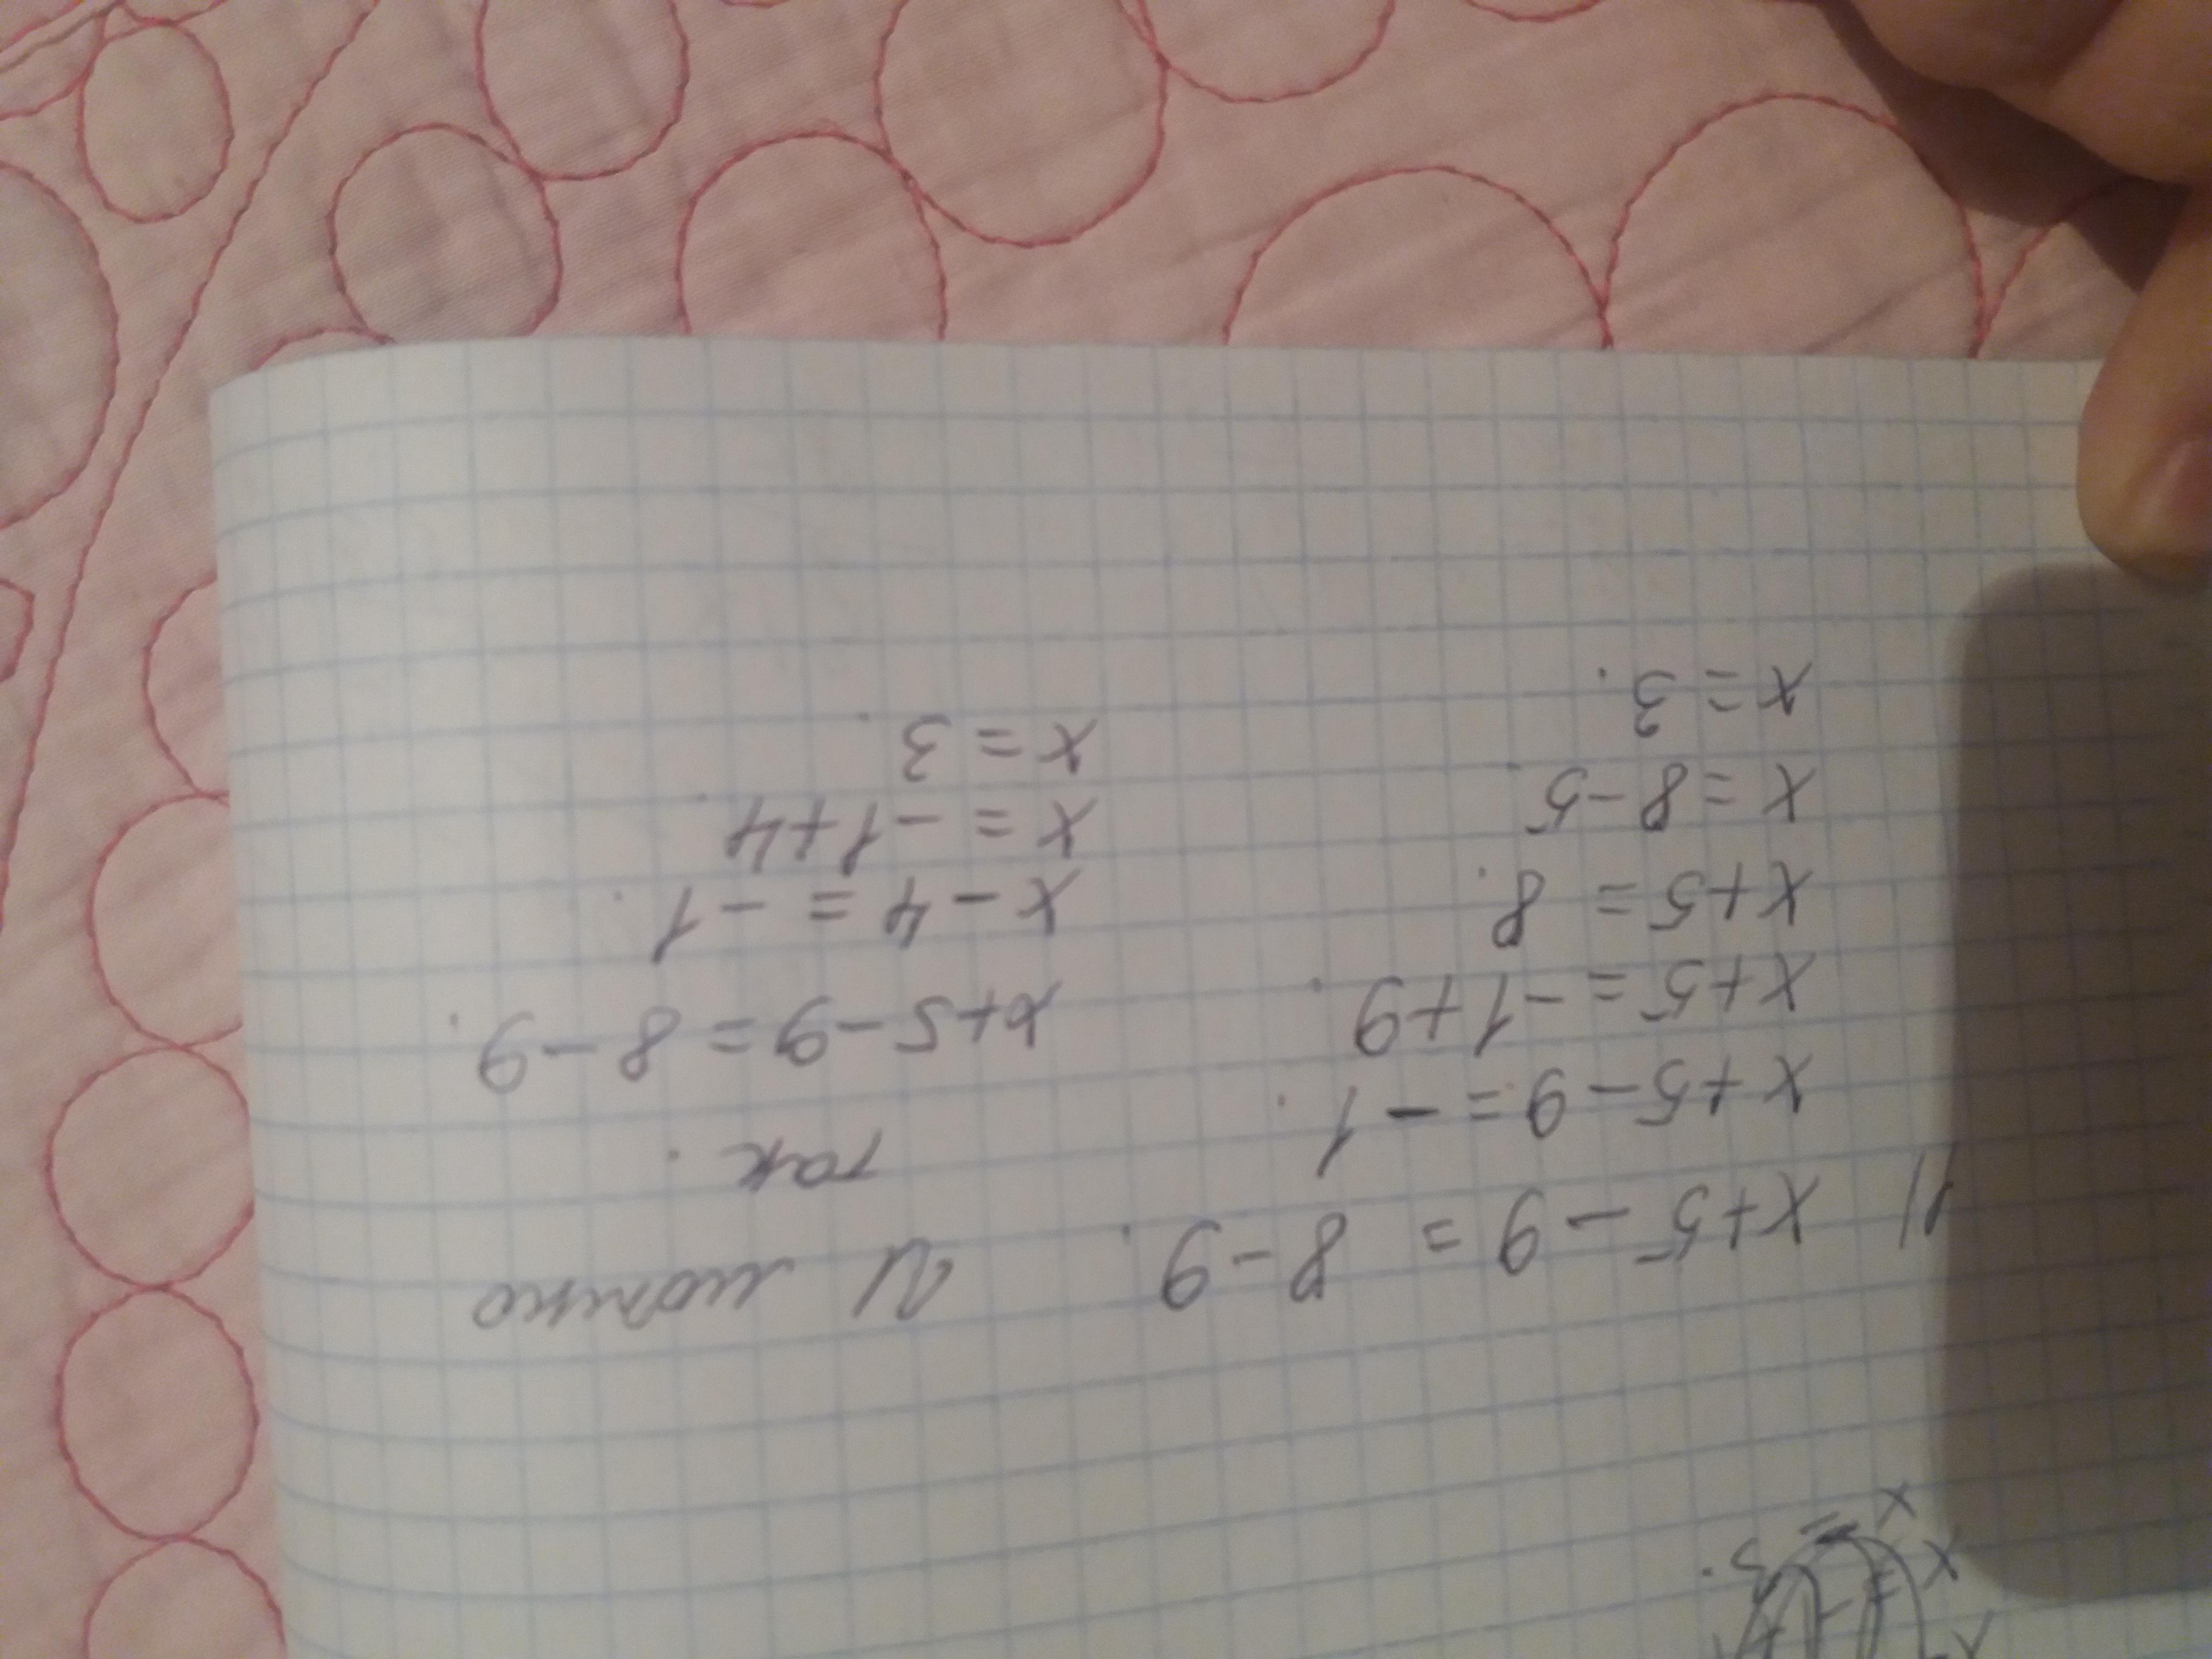 1) x+5-9 = 8-9.
x+5-9=-1.
x+5=-1+9.
x+5=8.
x=8-5.
x=3.
И можно
так.
x+5-9=8-9.
x-4=-1.
x=-1+4.
x=3.